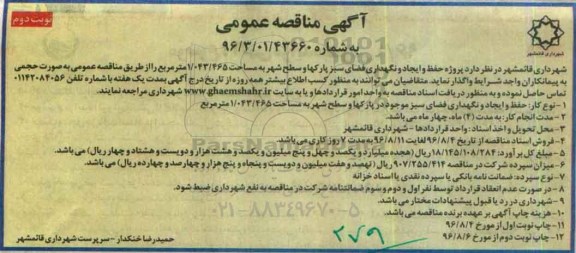 آگهی مناقصه عمومی
نوبت دوم
به شماره ۹۶/۳/۰۱/۴۳۶۶۰
شهرداری قائمشهر
شهرداری قائمشهر در نظر دارد پروژه حفظ و ایجاد و نگهداری فضای سبز پارکها و سطح شهر به مساحت ۱/۰۴۳/۴۶۵ مترمربع را از طریق مناقصه عمومی به صورت حجمی
به پیمانکاران واجد شرایط واگذار نماید. متقاضیان می توانند به منظور کسب اطلاع بیشتر همه روزه از تاریخ درج آگهی بمدت یک هفته با شماره تلفن ۰۱۱۴۲۰۸۴۰۵۶
تماس حاصل نموده و به منظور دریافت اسناد مناقصه به واحد امور قراردادها و یا به سایت www.ghaemshahr.ir شهرداری مراجعه نمایند.
۱- نوع کار: حفظ و ایجاد و نگهداری فضای سبز موجود در پارکها و سطح شهر به مساحت ۱/۰۴۳/۴۶۵ مترمربع
۲- مدت انجام کار: به مدت (۴) ماه، چهار ماه می باشد.
۳- محل تحویل و اخذ اسناد: واحد قراردادها - شهرداری قائمشهر
۴- فروش اسناد مناقصه از تاریخ ۹۶/۸/۴ لغایت ۹۶/۸/۱۱ به مدت ۷ روز کاری می باشد.
۵- مبلغ کل برآورد: ۱۸/۱۴۵/۱۰۸/۲۸۴ ریال (هجده میلیارد و یکصد و چهل و پنج میلیون و یکصد و هشت هزار و دویست و هشتاد و چهار ریال) می باشد.
۶- میزان سپرده شرکت در مناقصه ۹۰۷/۲۵۵/۴۱۴ ریال (نهصد و هفت میلیون و دویست و پنجاه و پنج هزار و چهارصد و چهارده ریال) می باشد.
۷- نوع سپرده: ضمانت نامه بانکی یا سپرده نقدی یا اسناد خزانه
۸- در صورت عدم انعقاد قرارداد توسط نفر اول و دوم و سوم ضمانتنامه شرکت در مناقصه به نفع شهرداری ضبط شود.
۹- شهرداری در رد یا قبول پیشنهادات مختار می باشد.
۱۰- هزینه چاپ آگهی بر عهده برنده مناقصه می باشد.
۱۱- چاپ نوبت اول از مورخ ۹۶/۸/۴
۱۲- چاپ نوبت دوم از مورخ ۹۶/۸/۶
حمیدرضا خنکدار - سرپرست شهرداری قائمشهر
۰۲۱-۸۸۳۴۹۶۷۰-۵
۲۷۹